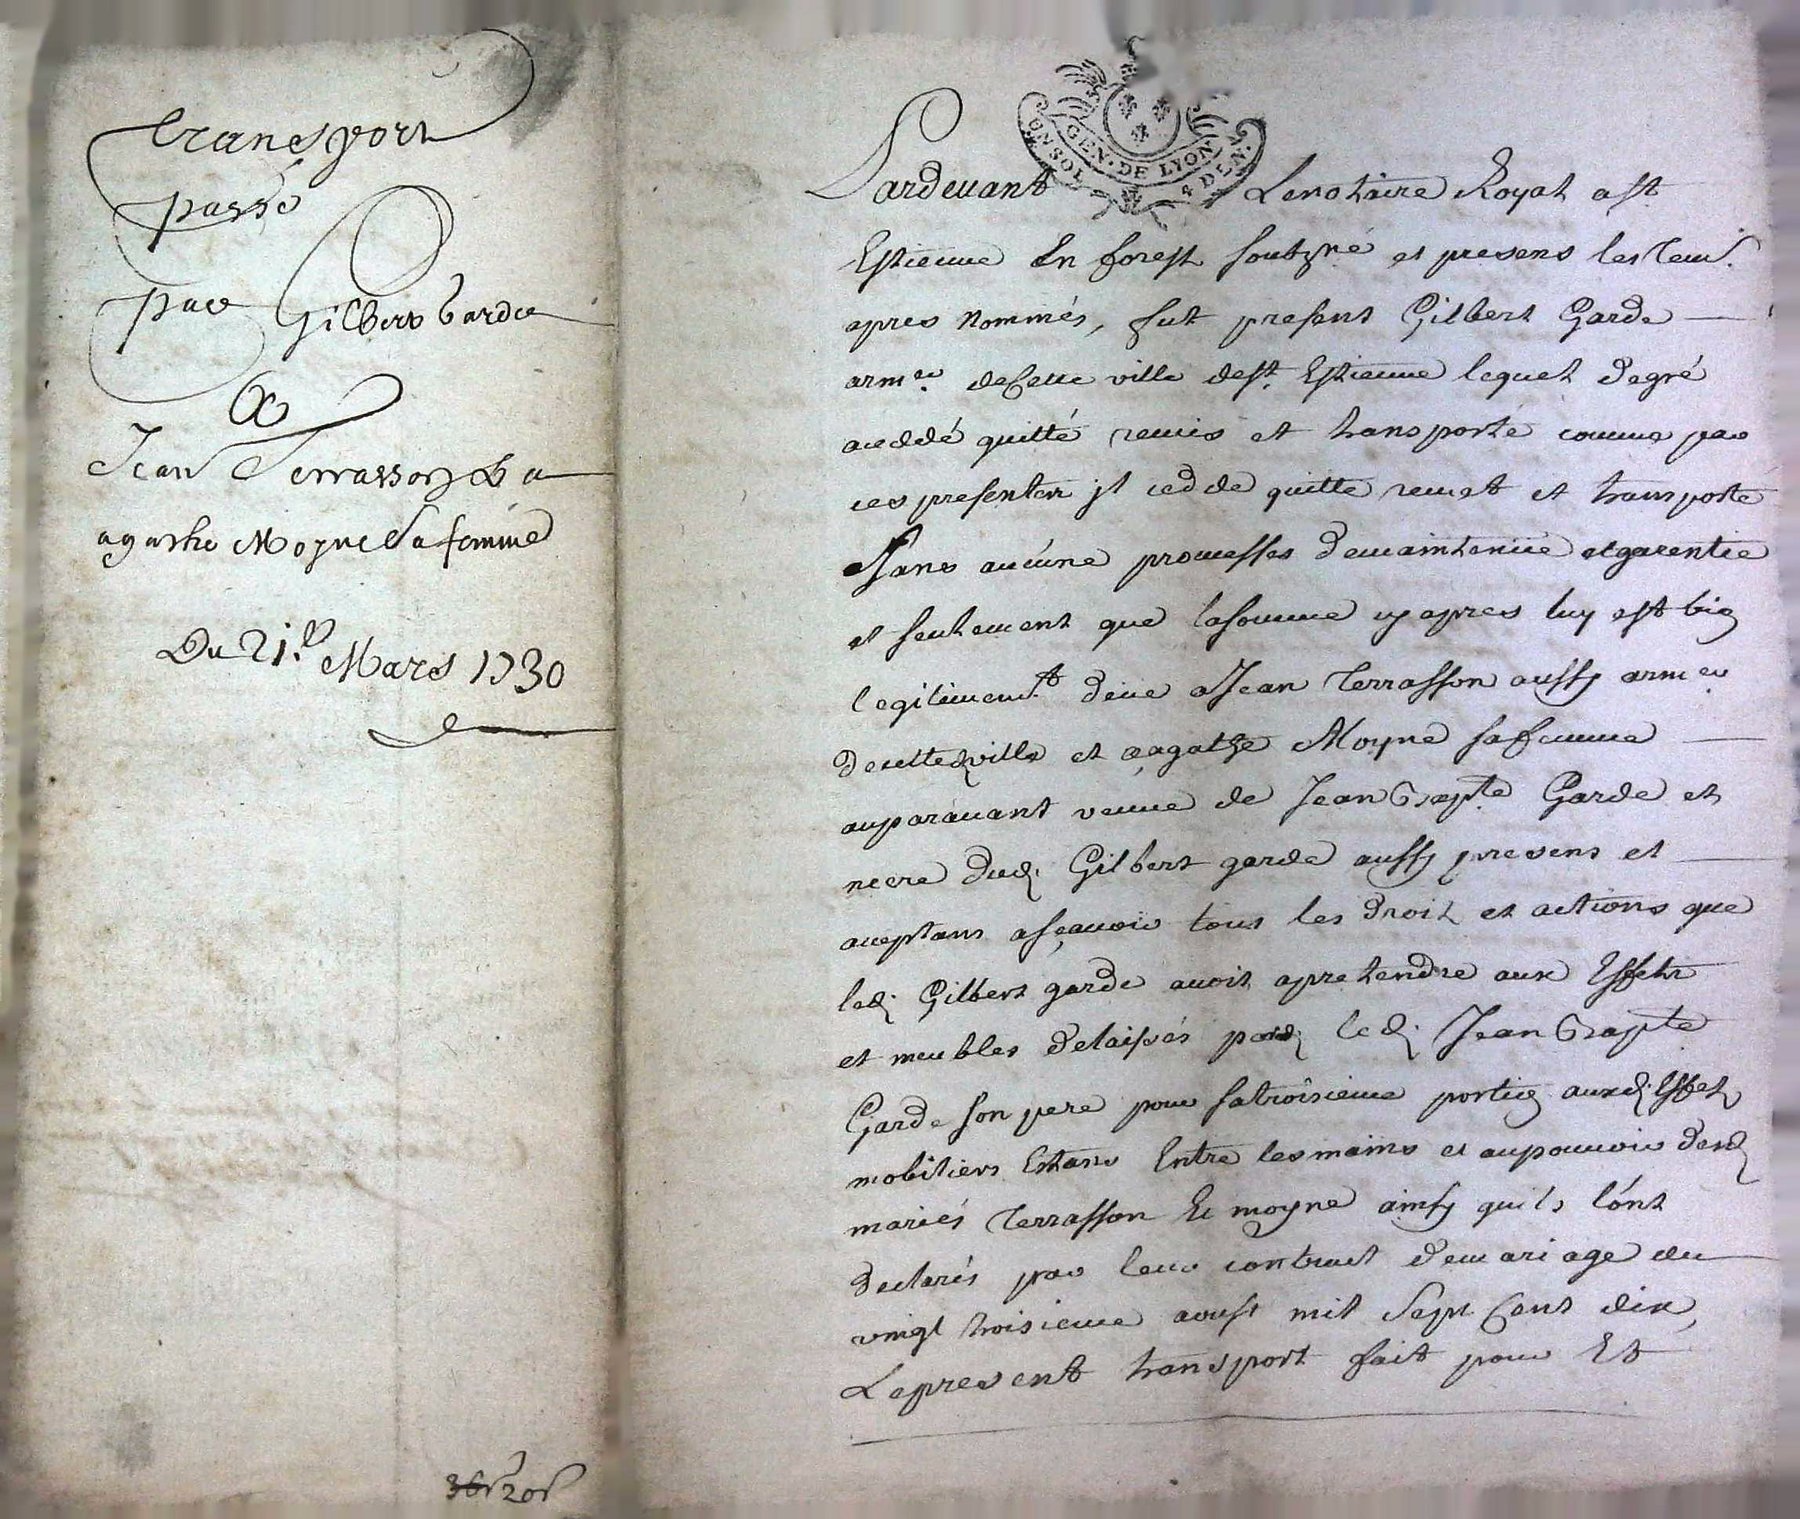 transport
passé
par Gilbert Garde
a
Jean Terrasson & a
agathe Moyne sa femme
Du 21.e Mars 1730
36s 20s
GEN. DE LYON
UN SOL 4 DEN.
Pardevant Lenotaire Royal a St
Estienne En forest soubzné et presens les tem.
apres Nommés, fut present Gilbert Garde
arm.er deCette ville de St. Estienne lequel de gré
a ceddé quitté remis et transporté comme par
ces presentes jl cedde quitte remet et transporte
sans aucune promesses demaintenüe et garentie
et seulement que lasomme cy apres luy est bien
legitimem.t deüe a Jean Terrasson aussy armer
decette ville et a agathe Moyne sa femme
auparavant veuve de Jean Bapte Garde et
mere dud. Gilbert garde aussy presens et
aceptans a sçavoir tous les droit et actions que
led. Gilbert garde avoit a pretendre aux Effets
et meubles delaissés par led. Jean Bapte
Garde son pere pour satroisieme portion auxd. Effets
mobiliers Estans Entre les mains et aupouvoir desd.
mariés Terrasson Et moyne ainsy quils lónt
declarés par leur contract demariage du
vingt troisieme aoust mil Sept Cent dix,
Lepresent transport fait pour Et